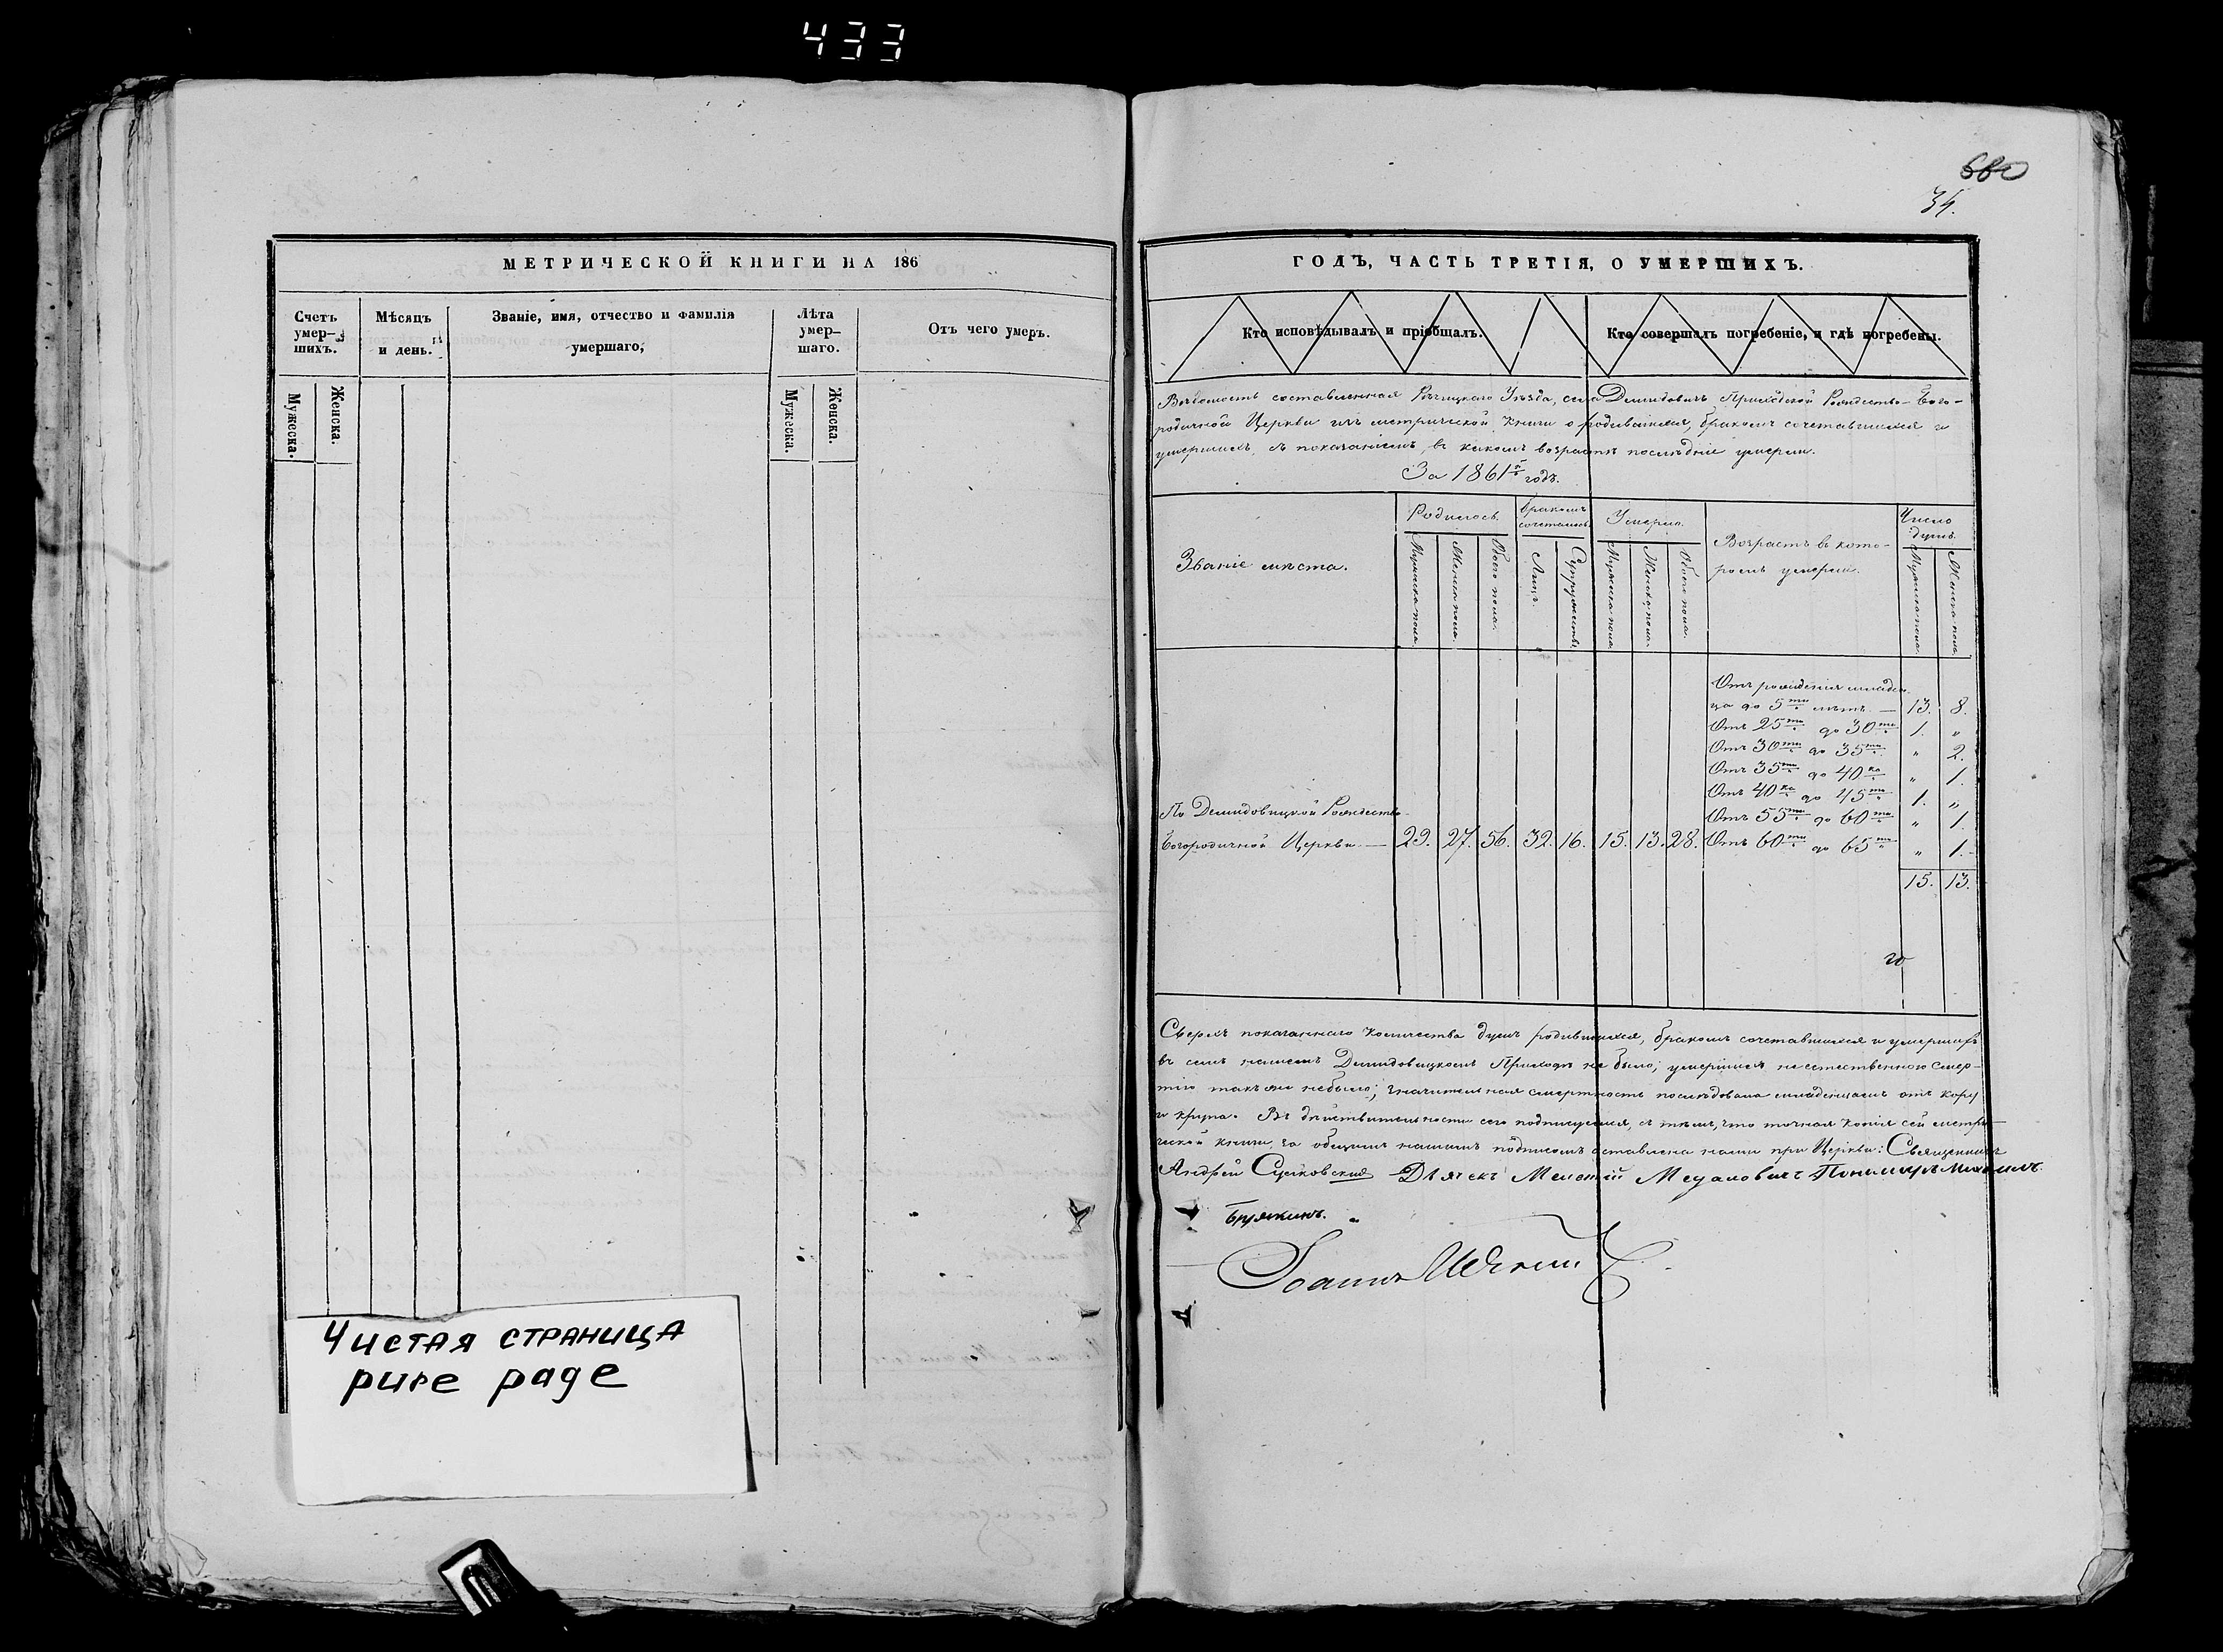 433
МЕТРИЧЕСКОЙ КНИГИ НА 186
Счетъ умер-шихъ.
Мѣсяцъ и день.
Званіе, имя, отчество и фамилія умершаго,
Лѣта умер-шаго.
Отъ чего умеръ.
Мужеска.
Женска.
Мужеска.
Женска.
Чистая страница
pure page
680
34.
ГОДЪ, ЧАСТЬ ТРЕТІЯ, О УМЕРШИХЪ.
Кто исповѣдывалъ и пріобщалъ.
Кто совершалъ погребеніе, и гдѣ погребены.
Вѣдомость составленная Рѣчицкаго Уѣзда, села Демидовичъ Приходской Рождество-Бого-
родичной Церкви изъ метрической книги о родившихся, бракомъ сочетавшихся и
умершихъ, съ показаніемъ, въ какомъ возрастѣ послѣдніе умерли.
За 1861й годъ.
Званіе мѣста.
Родилось.
Бракомъ сочетались.
Умерло.
Возрастъ въ кото-
ромъ умерли.
Число душъ.
Мужеска пола.
Женска пола.
Обоего пола.
Лицъ.
Супружествъ.
Мужеска пола.
Женска пола.
Обоего пола.
Мужеска пола.
Женска пола.
Отъ рожденія младен-
ца до 5ти лѣтъ. — 13. 8.
Отъ 25ти до 30ти 1. "
Отъ 30ти до 35ти " 2.
Отъ 35ти до 40ка " 1.
Отъ 40ка до 45ти 1. "
Отъ 55ти до 60ти " 1.
Отъ 60ти до 65ти " 1.
15. 13.
По Демидовицкой Рождество-
Богородичной Церкви — 29. 27. 56. 32. 16. 15. 13. 28.
Сверхъ показаннаго количества душъ родившихся, бракомъ сочетавшихся и умершихъ
въ семъ нашемъ Демидовицкомъ Приходѣ не было; умершихъ неестественною смер-
тію такъ же небыло; значительная смертность послѣдовала младенцамъ отъ кору
и крупа. Въ дѣйствительности сего подписуемся, съ тѣмъ, что точная копія сей метри-
ческой книги за общимъ нашимъ подписомъ оставлена нами при Церкви: Священникъ
Андрей Дьячекъ Мелетій Пономарь Михаилъ
Іоаннъ